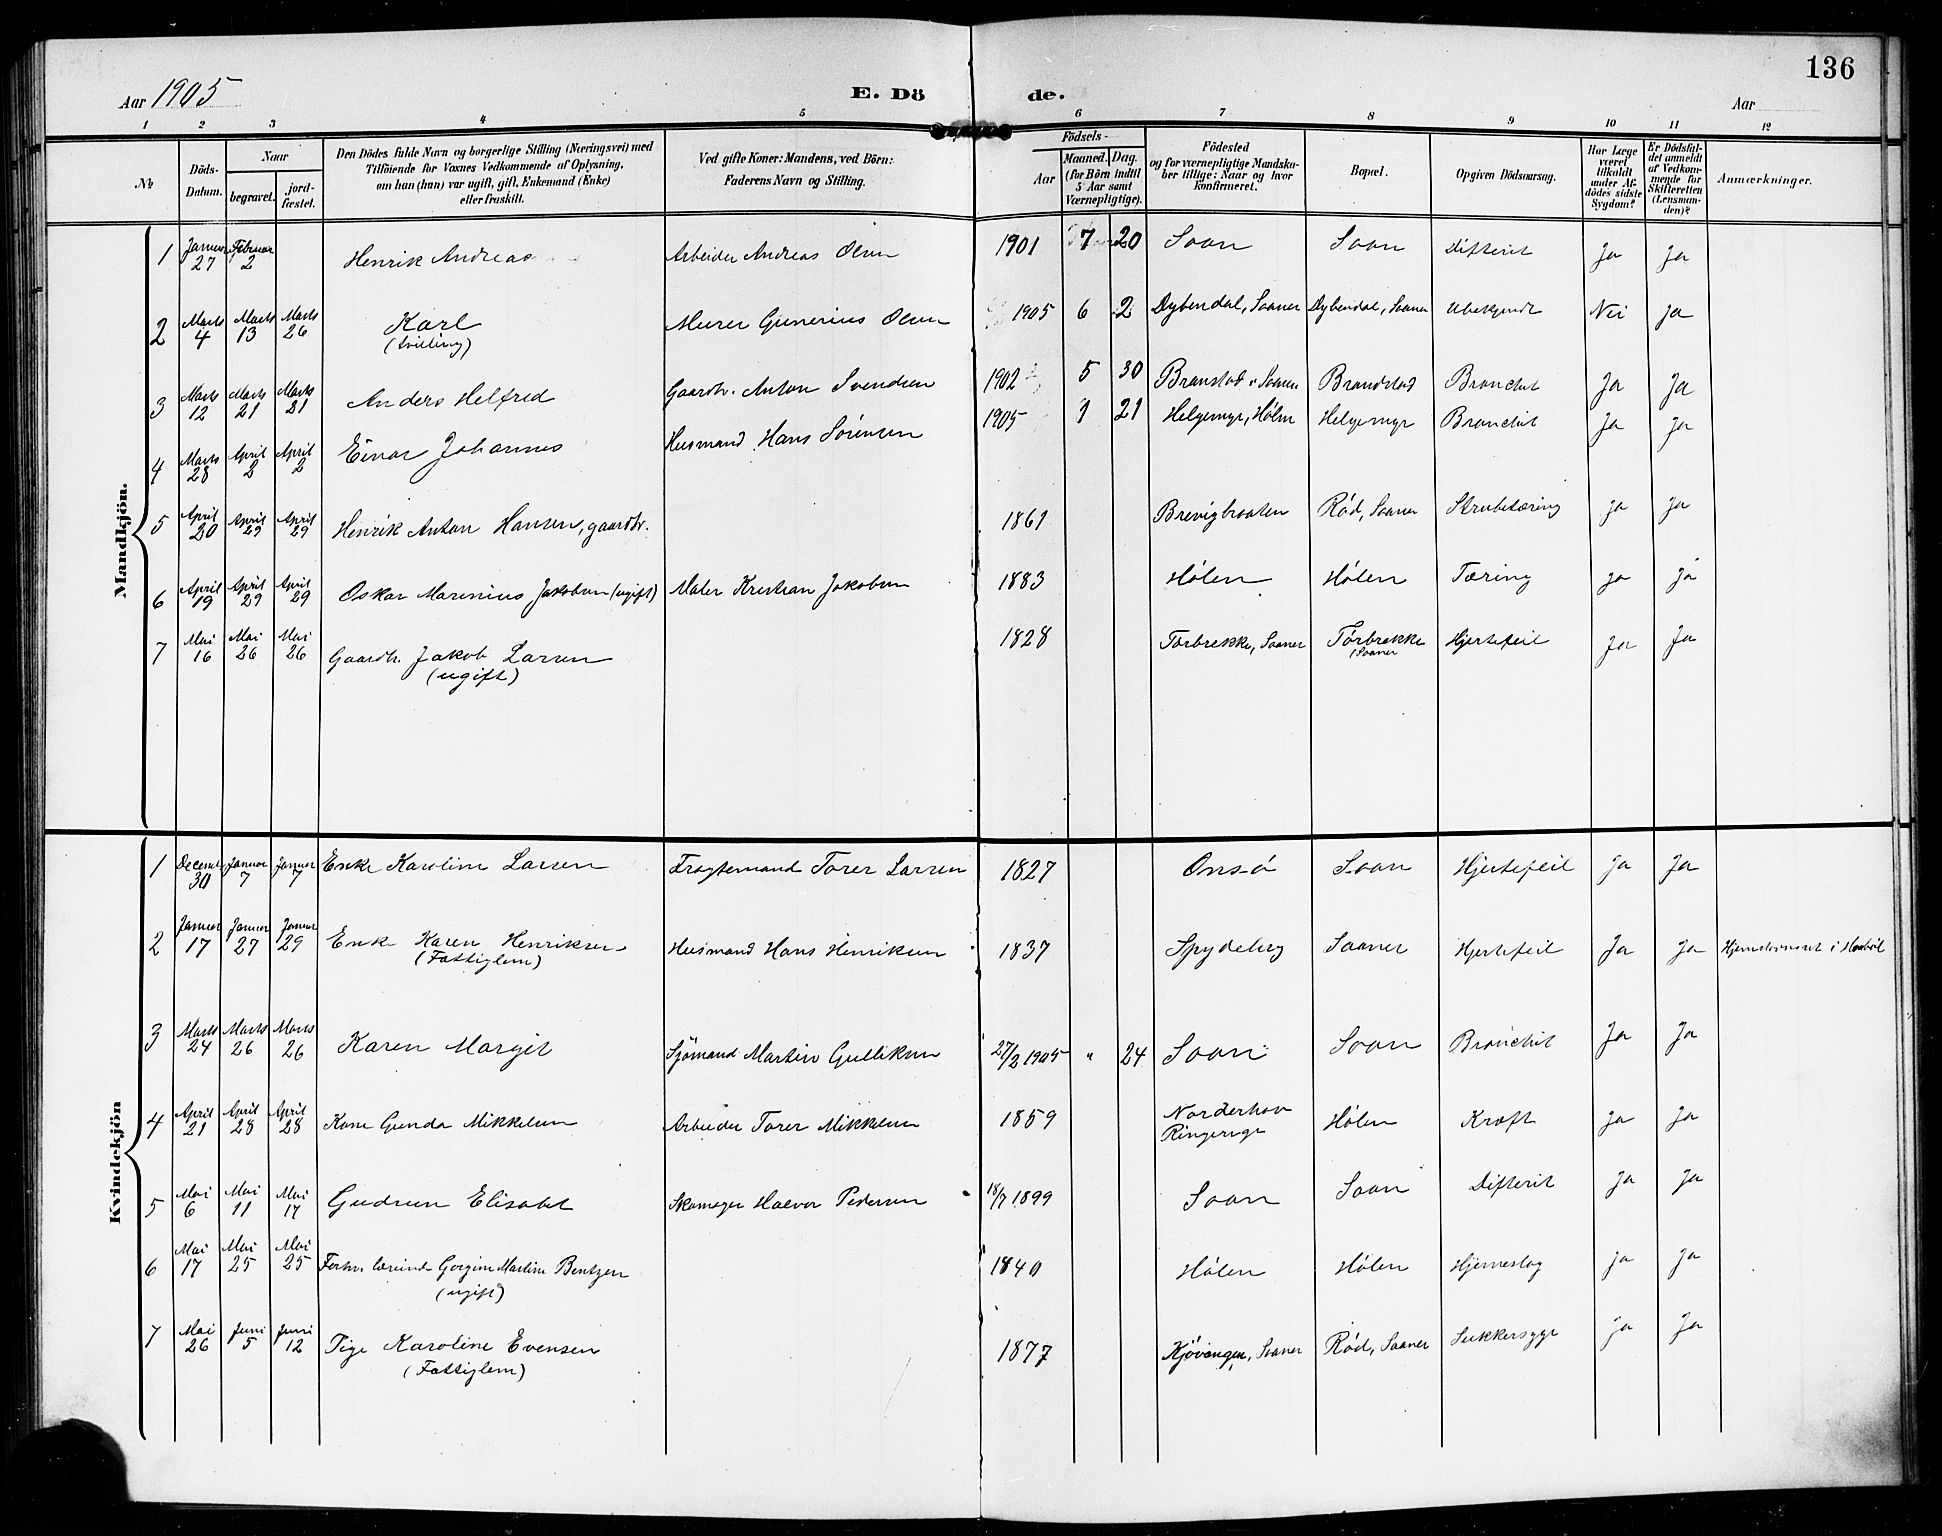 136
Aar 1905 E. Dö de. Aar
1 2 3 4 5 6 7 8 9 10 11 12
№
Döds-Datum.
Naar
begravet.
jord-fæstet.
Den Dödes fulde Navn og borgerlige Stilling (Næringsvei) med
Tilföiende for Voxnes Vedkommende af Oplysning,
om han (hun) var ugift, gift, Enkemand (Enke)
eller fraskilt.
Ved gifte Koner: Mandens, ved Börn:
Faderens Navn og Stilling.
Födsels-
Aar
Maaned. Dag.
(for Börn indtil
5 Aar samt
Værnepligtige).
Födested
og for værnepligtige Mandska-
ber tillige: Naar og hvor
konfirmeret.
Bopæl.
Opgiven Dödsaarsag.
Har Læge
været
tilkaldt
under Af-
dödes sidste
Sygdom?
Er Dödsfal-
det anmeldt
af Vedkom-
mende for
Skifteretten
(Lensman-
den)?
Anmærkninger.
Mandkjön.
1 Januar 27 Februar 2 Henrik Andreas Arbeider Andreas Olsen 1901 7 20 Soon Soon Difterit Ja Ja
2 Marts 4 Marts 13 Marts 26 Karl Murer Gunerius Olsen 1905 6 2 Dybendal, Saaner Dybendal, Saaner Ubekjendt Nei Ja
(tvilling)
3 Marts 12 Marts 21 Marts 21 Anders Helfred Gaardbr. Anton Svendsen 1902 5 30 Branstad, Saaner Brandstad Bronchit Ja Ja
4 Marts 28 April 2 April 2 Einar Johannes Husmand Hans Sörensen 1905 1 21 Helgemyr, Hölen Helgemyr Bronchit Ja Ja
5 April 20 April 29 April 29 Henrik Anton Hansen, gaardbr. 1861 Brevigbraaten Röd, Saaner Strubetæring Ja Ja
6 April 19 April 29 April 29 Oskar Marinius Jakobsen (ugift) Maler Kristian Jakobsen 1883 Hölen Hölen Tæring Ja Ja
7 Mai 16 Mai 26 Mai 26 Gaardbr. Jakob Larsen 1828 Törbrekke, Saaner Törbrekke, Saaner Hjertefeil Ja Ja
(ugift)
Kvindekjön
1 Decemb 30 Januar 7 Januar 7 Enke Karoline Larsen Fragtemand Torer Larsen 1827 Onsö Soon Hjertefeil Ja Ja
2 Januar 17 Januar 27 Januar 29 Enke Karen Henriksen Husmand Hans Henriksen 1837 Spydeberg Saaner Hjertefeil Ja Ja
(Fattiglem)
3 Marts 24 Marts 26 Marts 26 Karen Margit Sjömand Martin Gulliksen 27/2 1905 " 24 Soon Soon Bronchit Ja Ja
4 April 21 April 28 April 28 Kone Gunda Mikkelsen Arbeider Torer Mikkelsen 1859 Norderhov Ringerige Hölen Kræft Ja Ja
5 Mai 6 Mai 11 Mai 17 Gudrun Elisabet Skomager Halvor Pedersen 18/7 1899 Soon Soon Difterit Ja Ja
6 Mai 17 Mai 25 Mai 25 Forhv. lærerinde Gorgine Martine Bentzen 1840 Hölen Hölen Hjerneslag Ja Ja
(ugift)
7 Mai 26 Juni 5 Juni 12 Pige Karoline Evensen 1877 Kjövangen, Saaner Röd, Saaner Sukkersyge Ja Ja
(Fattiglem)